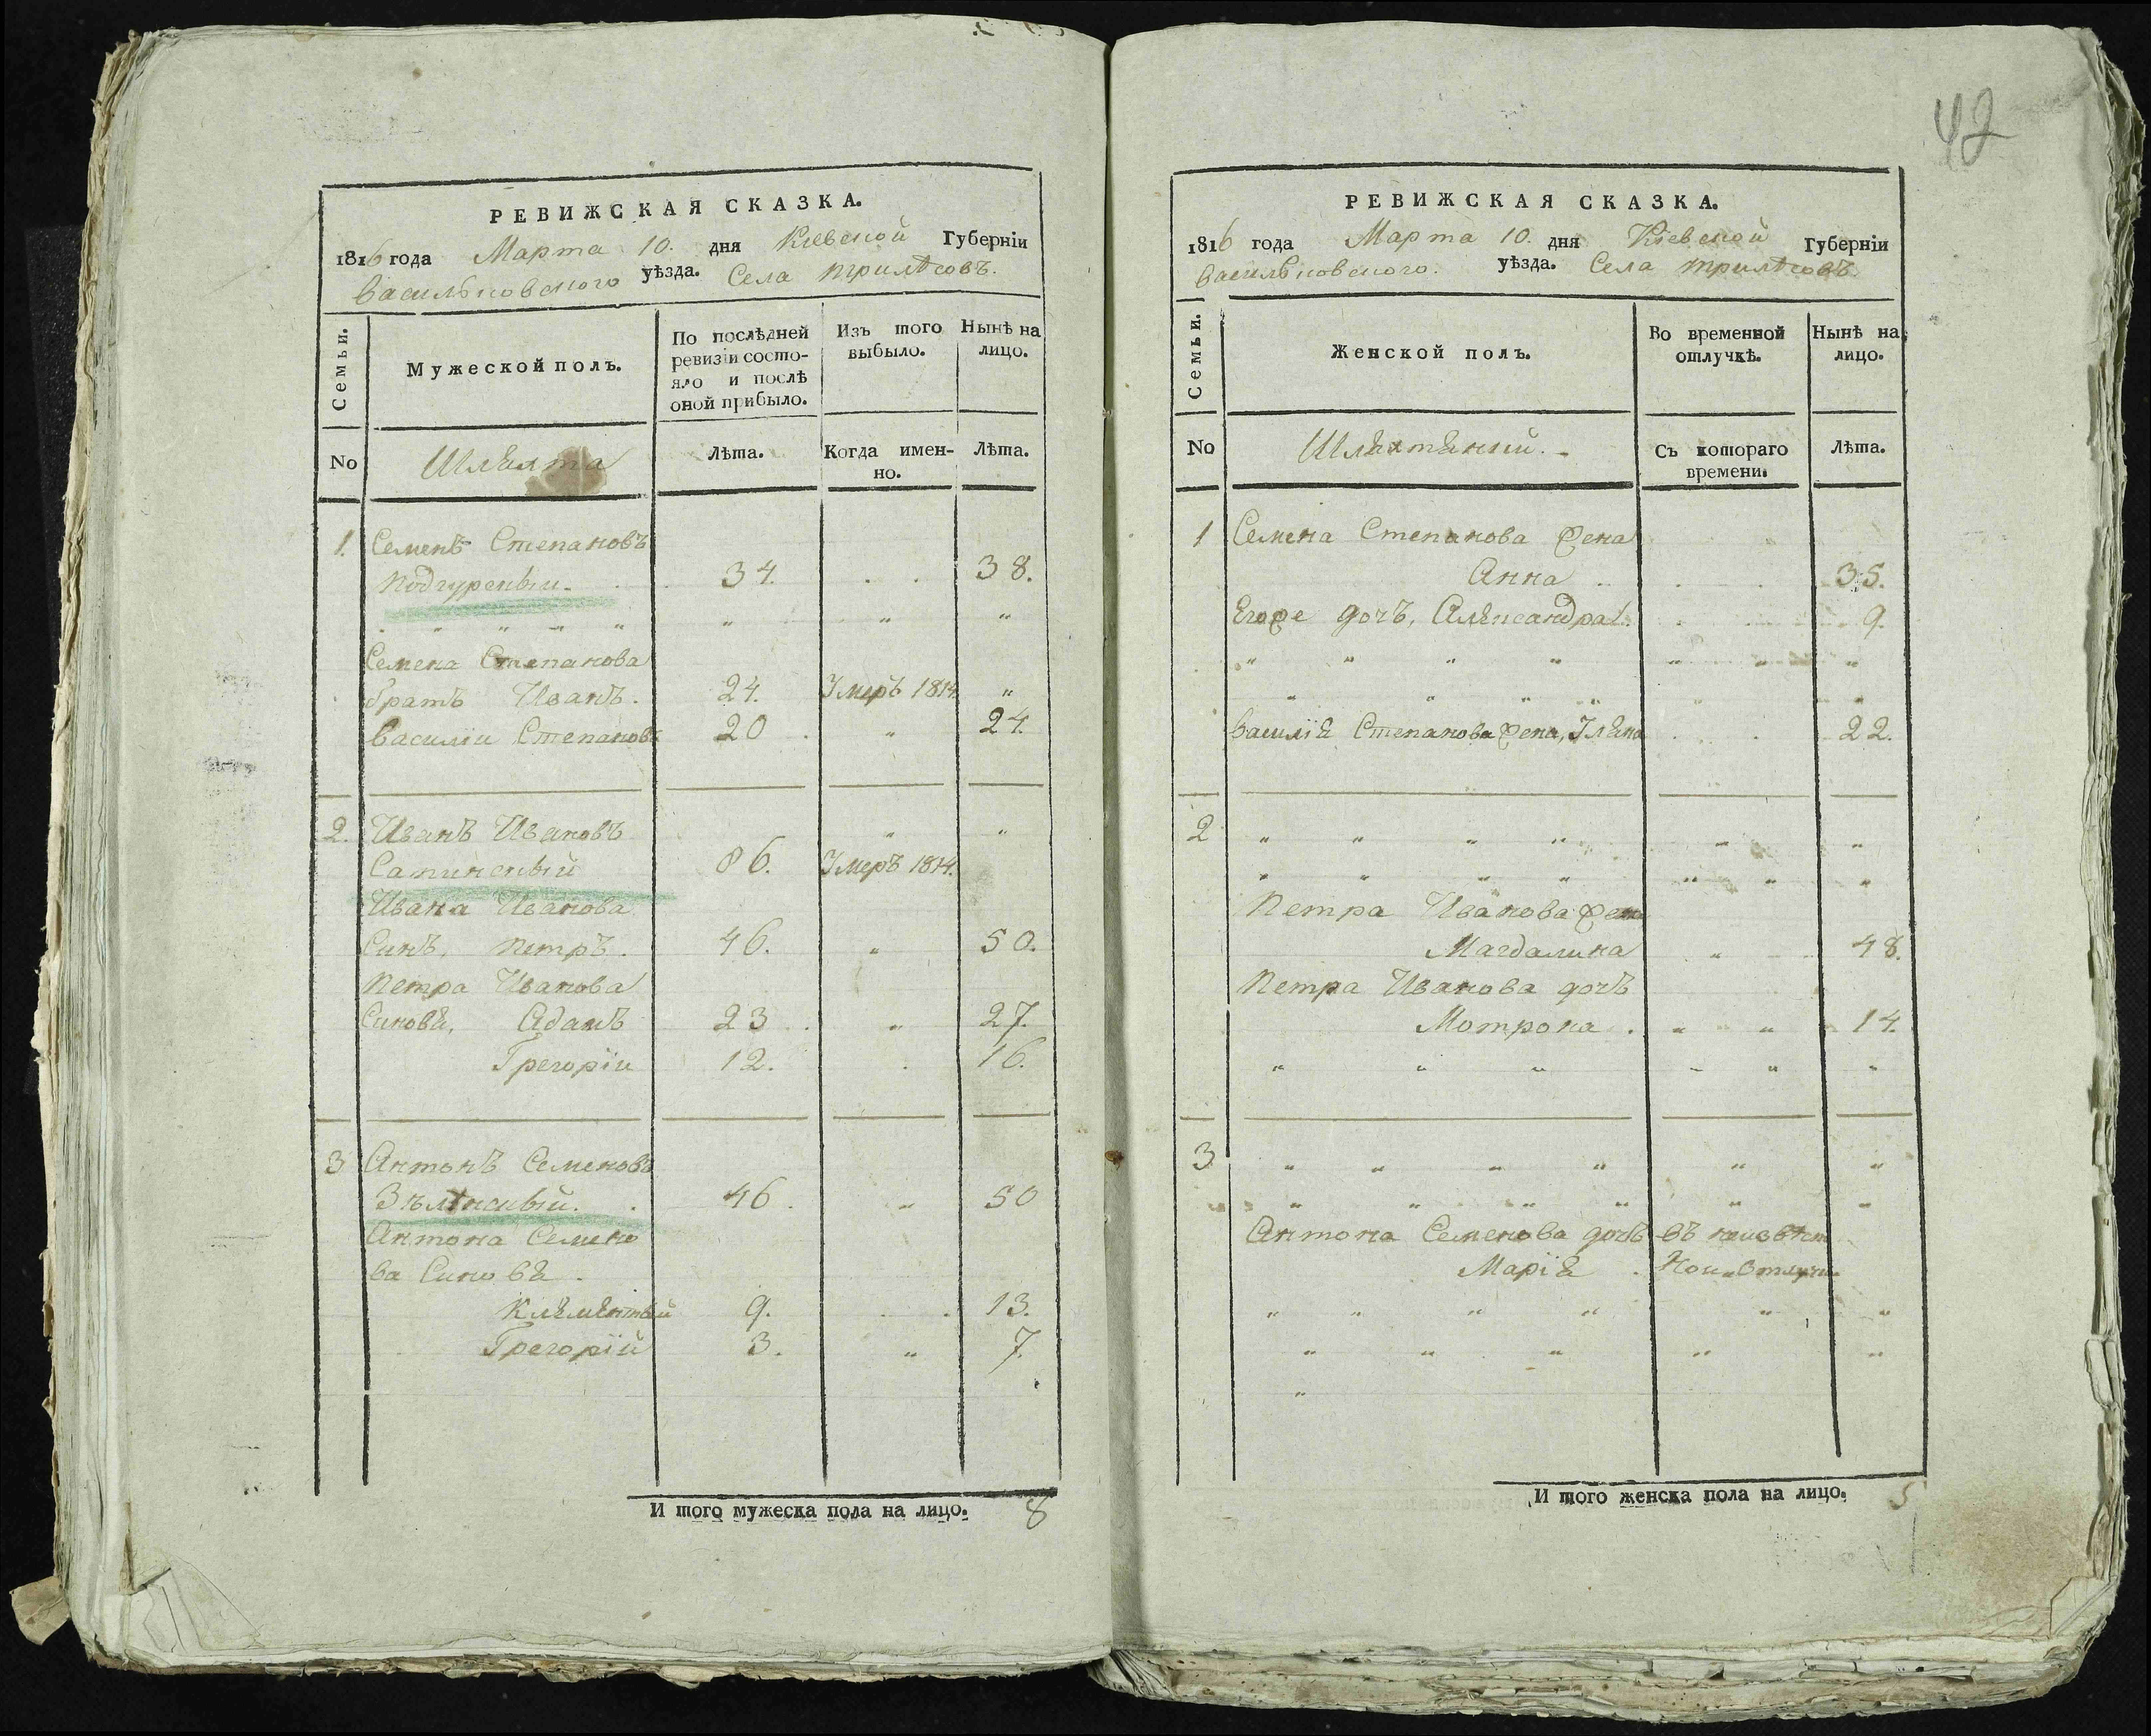 42
РЕВИЖСКАЯ СКАЗКА.
1816 года Марта 10. дня Кіевской Губерніи
Васильковского уѣзда. Села Трилѣсовъ.
Семьи.
Мужеской полъ.
По послѣдней ревизіи состояло и послѣ оной прибыло.
Изъ того выбыло.
Нынѣ на лицо.
No
Шляхта
Лѣта.
Когда именно.
Лѣта.
1. Семенъ Степановъ
Подгурскый. 34. 38.
" " " " " " "
Семена Степанова
братъ Иванъ. 24. Умеръ 1814 "
Василіи Степановъ 20 " 24.
2. Иванъ Ивановъ " "
Сапинскый 86. Умеръ 1814.
Ивана Иванова
Синъ, Петръ. 46. " 50.
Петра Иванова
Синовя, Адамъ 23 " 27.
Грегоріи 12. 16.
3 Антонъ Семеновъ
46. " 50
Антона Семено
ва Синовя.
Клементый 9. 13.
Грегорій 3. " 7.
И того мужеска пола на лицо. 8
РЕВИЖСКАЯ СКАЗКА.
1816 года Марта 10. дня Кіевской Губерніи
Васильковского. уѣзда. Села Трилѣсовъ.
Семьи.
Женской полъ.
Во временной отлучкѣ.
Нынѣ на лицо.
No
Съ котораго времени.
Лѣта.
1 Семена Степанова жена
Анна 35.
Егоже дочъ, Александра. 9.
" " " " " " "
" " " " " "
Василія Степанова жена, Уляна 22.
2 " " " " " "
" " " " " " "
Петра Иванова жена
Магдалина " 48.
Петра Иванова дочъ
Мотрона. " " 14.
" " " " " "
3 " " " " " "
" " " " " "
Антона Семенова дочъ въ
Марія
" " " " " "
" " " " "
"
И того женска пола на лицо. 5